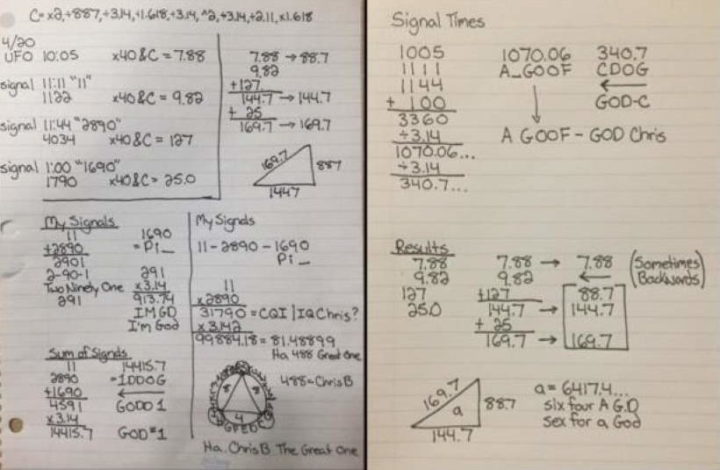 C= x2,÷887,÷3.14,÷1.618,÷3.14,^2,÷3.14,÷2.11,x1.618
4/20
UFO 10:05 x40&C = 7.88
signal 11:11 "11"
1122 x40&C = 9.82
signal 11:44 "2890"
4034 x40&C = 127
signal 1:00 "1690"
1790 x40&C = 25.0
7.88 → 88.7
9.82
+127
144.7 → 144.7
+ 25
169.7 → 169.7
169.7
887
1447
My Signals
11
+2890
2901
2-90-1
Two Ninety One
291
1690
= Pi_
291
x3.14
913.74
IMGD
I'm God
Sum of Signals
11
2890
+1690
4591
x3.14
14415.7
14415.7
=1DDOG
←
GODD 1
GOD#1
My Signds
11-2890-1690
Pi_
11
x2890
31790 = CQI | IQ Chris?
x3.142
99884.18 = 81.48899
Ha 488 Great One
8
8
4
488=ChrisB
Ha. ChrisB The Great One
Signal Times
1005
1111
1144
+ 100
3360
÷3.14
1070.06...
÷3.14
340.7...
1070.06
A_GOOF
↓
A GOOF - GOD Chris
340.7
CDOG
←
GOD-C
Results
7.88
9.82
127
25.0
7.88 → 7.88
9.82 ←
+127 88.7
144.7 → 144.7
+ 25
169.7 → 169.7
(Sometimes Backwards)
169.7
a
88.7
144.7
a= 6417.4...
six four A G.D
sex for a God